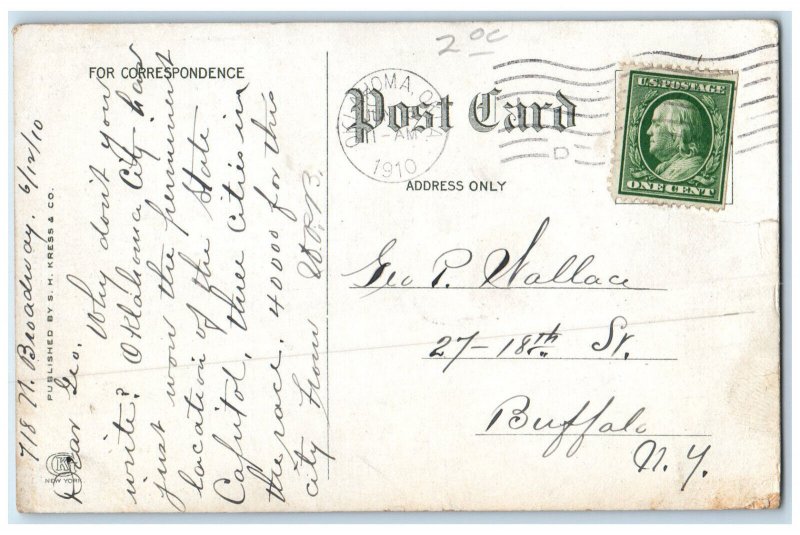 20c
FOR CORRESPONDENCE
Post Card
ADDRESS ONLY
OKLAHOMA, OKLA
11-AM
1910
D
U.S. POSTAGE
ONE CENT
718 N. Broadway. 6/12/10
Dear Geo. Why don't you
write? Oklahoma City has
just won the permanent
location of the State
Capitol, three cities in
the race. 40000 for this
city from
Geo P. Wallace
27-18th St.
Buffalo
N.Y.
PUBLISHED BY S. H. KRESS & CO.
K
NEW YORK